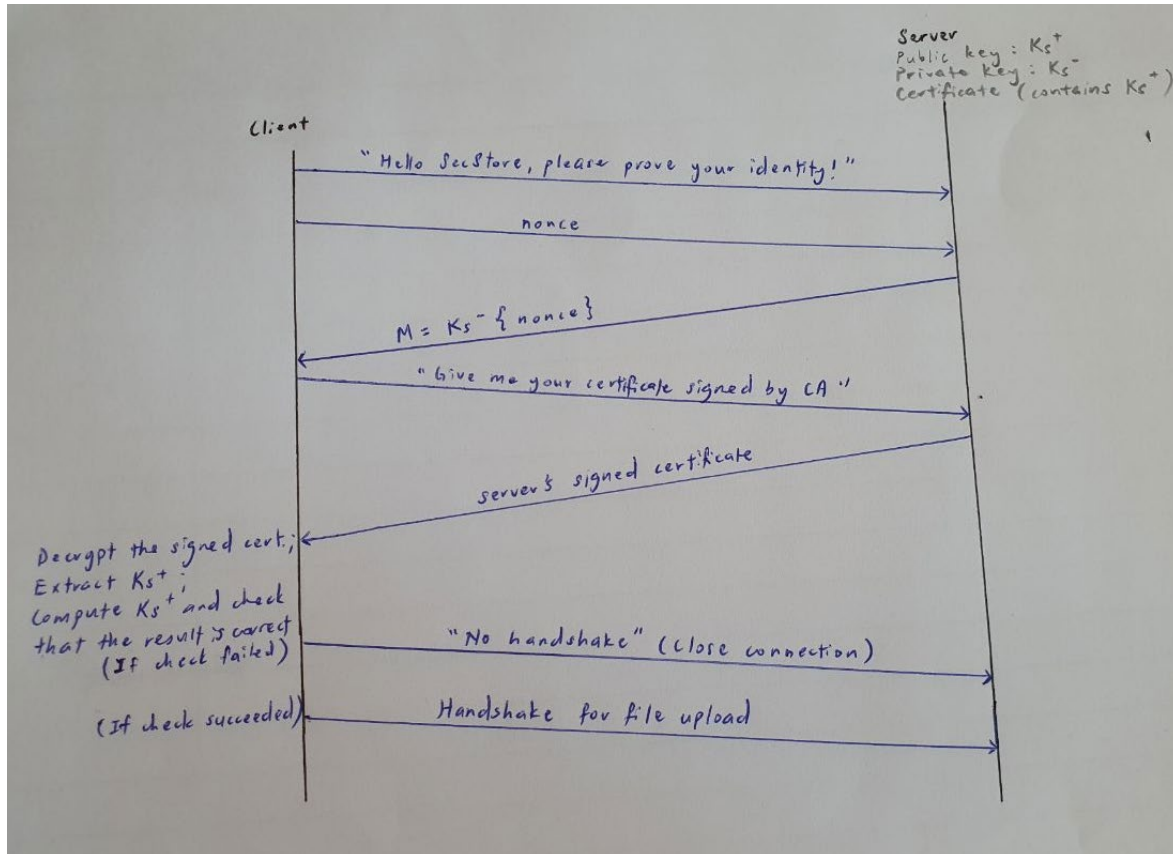 Server
Public key : Ks⁺
Private key : Ks⁻
Certificate (contains Ks⁺)
Client
"Hello SecStore, please prove your identity!"
nonce
M = Ks⁻ { nonce }
"Give me your certificate signed by CA"
server's signed certificate
Decrypt the signed cert.;
Extract Ks⁺ ;
Compute Ks⁺ and check
that the result is correct
(If check failed)
"No handshake" (Close connection)
(If check succeeded)
Handshake for file upload